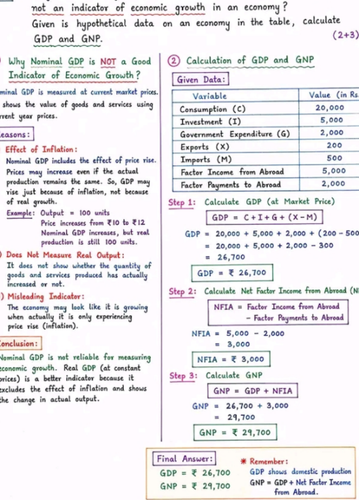 not an indicator of economic growth in an economy?
Given is hypothetical data on an economy in the table, calculate
GDP and GNP.
(2+3)
Why Nominal GDP is NOT a Good
Indicator of Economic Growth?
ominal GDP is measured at current market prices.
shows the value of goods and services using
rrent year prices.
easons:
Effect of Inflation:
Nominal GDP includes the effect of price rise.
Prices may increase even if the actual
production remains the same. So, GDP may
rise just because of inflation, not because
of real growth.
Example: Output = 100 units
Price increases from ₹10 to ₹12
Nominal GDP increases, but real
production is still 100 units.
) Does Not Measure Real Output:
It does not show whether the quantity of
goods and services produced has actually
increased or not.
) Misleading Indicator:
The economy may look like it is growing
when actually it is only experiencing
price rise (inflation).
onclusion:
Nominal GDP is not reliable for measuring
economic growth. Real GDP (at constant
prices) is a better indicator because it
excludes the effect of inflation and shows
the change in actual output.
② Calculation of GDP and GNP
Given Data:
Variable Value (in Rs
Consumption (C) 20,000
Investment (I) 5,000
Government Expenditure (G) 2,000
Exports (X) 200
Imports (M) 500
Factor Income from Abroad 5,000
Factor Payments to Abroad 2,000
Step 1: Calculate GDP (at Market Price)
GDP = C+I+G+(X-M)
GDP = 20,000 + 5,000 + 2,000 + (200 - 500
= 20,000 + 5,000 + 2,000 - 300
= 26,700
GDP = ₹ 26,700
Step 2: Calculate Net Factor Income from Abroad (N
NFIA = Factor Income from Abroad
- Factor Payments to Abroad
NFIA = 5,000 - 2,000
= 3,000
NFIA = ₹ 3,000
Step 3: Calculate GNP
GNP = GDP + NFIA
GNP = 26,700 + 3,000
= 29,700
GNP = ₹ 29,700
Final Answer:
GDP = ₹ 26,700
GNP = ₹ 29,700
* Remember:
GDP shows domestic production
GNP = GDP + Net Factor Income
from Abroad.